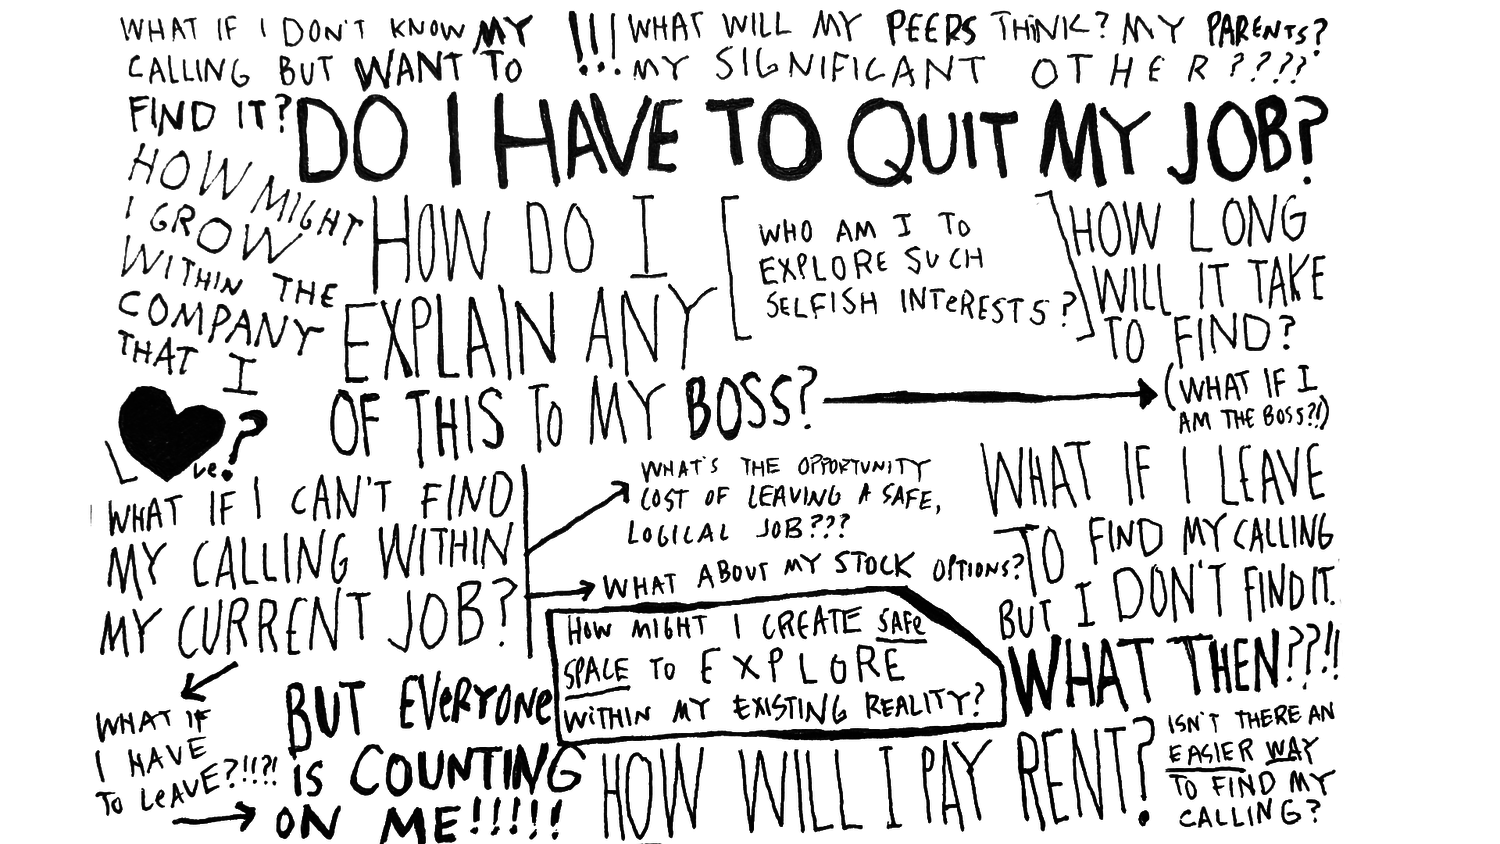 WHAT IF I DON'T KNOW MY
CALLING BUT WANT TO
FIND IT?
!!!
WHAT WILL MY PEERS THINK? MY PARENTS?
MY SIGNIFICANT OTHER????
DO I HAVE TO QUIT MY JOB?
HOW MIGHT
I GROW
WITHIN THE
COMPANY
THAT I
L♥ve.?
HOW DO I
EXPLAIN ANY
OF THIS TO MY BOSS?
[WHO AM I TO
EXPLORE SUCH
SELFISH INTERESTS?]
HOW LONG
WILL IT TAKE
TO FIND?
(WHAT IF I
AM THE BOSS?!)
WHAT IF I CAN'T FIND
MY CALLING WITHIN
MY CURRENT JOB?
WHAT'S THE OPPORTUNITY
COST OF LEAVING A SAFE,
LOGICAL JOB???
WHAT ABOUT MY STOCK OPTIONS?
WHAT IF I LEAVE
TO FIND MY CALLING
BUT I DON'T FIND IT.
WHAT THEN??!!
HOW MIGHT I CREATE SAFE
SPACE TO EXPLORE
WITHIN MY EXISTING REALITY?
WHAT IF
I HAVE
TO LEAVE?!!?!
BUT EVERYONE
IS COUNTING
ON ME!!!!!
HOW WILL I PAY RENT?
ISN'T THERE AN
EASIER WAY
TO FIND MY
CALLING?